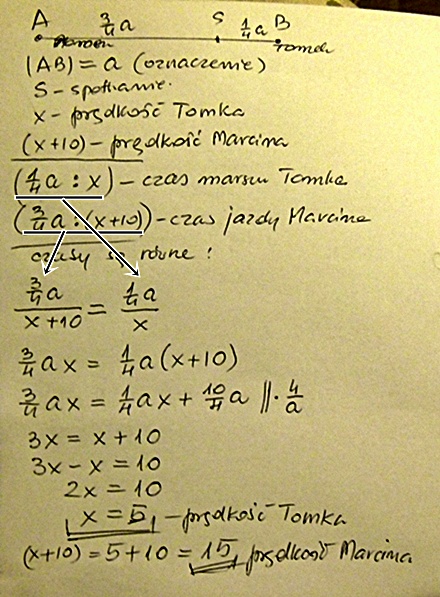 A 3/4a S 1/4a B
Marcin Tomek
(AB) = a (oznaczenie)
S - spotkanie.
x - prędkość Tomka
(x+10) - prędkość Marcina
(1/4a : x) - czas marszu Tomka
(3/4a : (x+10)) - czas jazdy Marcina
czasy są równe :
3/4a / x+10 = 1/4a / x
3/4 ax = 1/4 a (x+10)
3/4 ax = 1/4 ax + 10/4 a ||· 4/a
3x = x + 10
3x - x = 10
2x = 10
x = 5 - prędkość Tomka
(x+10) = 5 + 10 = 15, prędkość Marcina